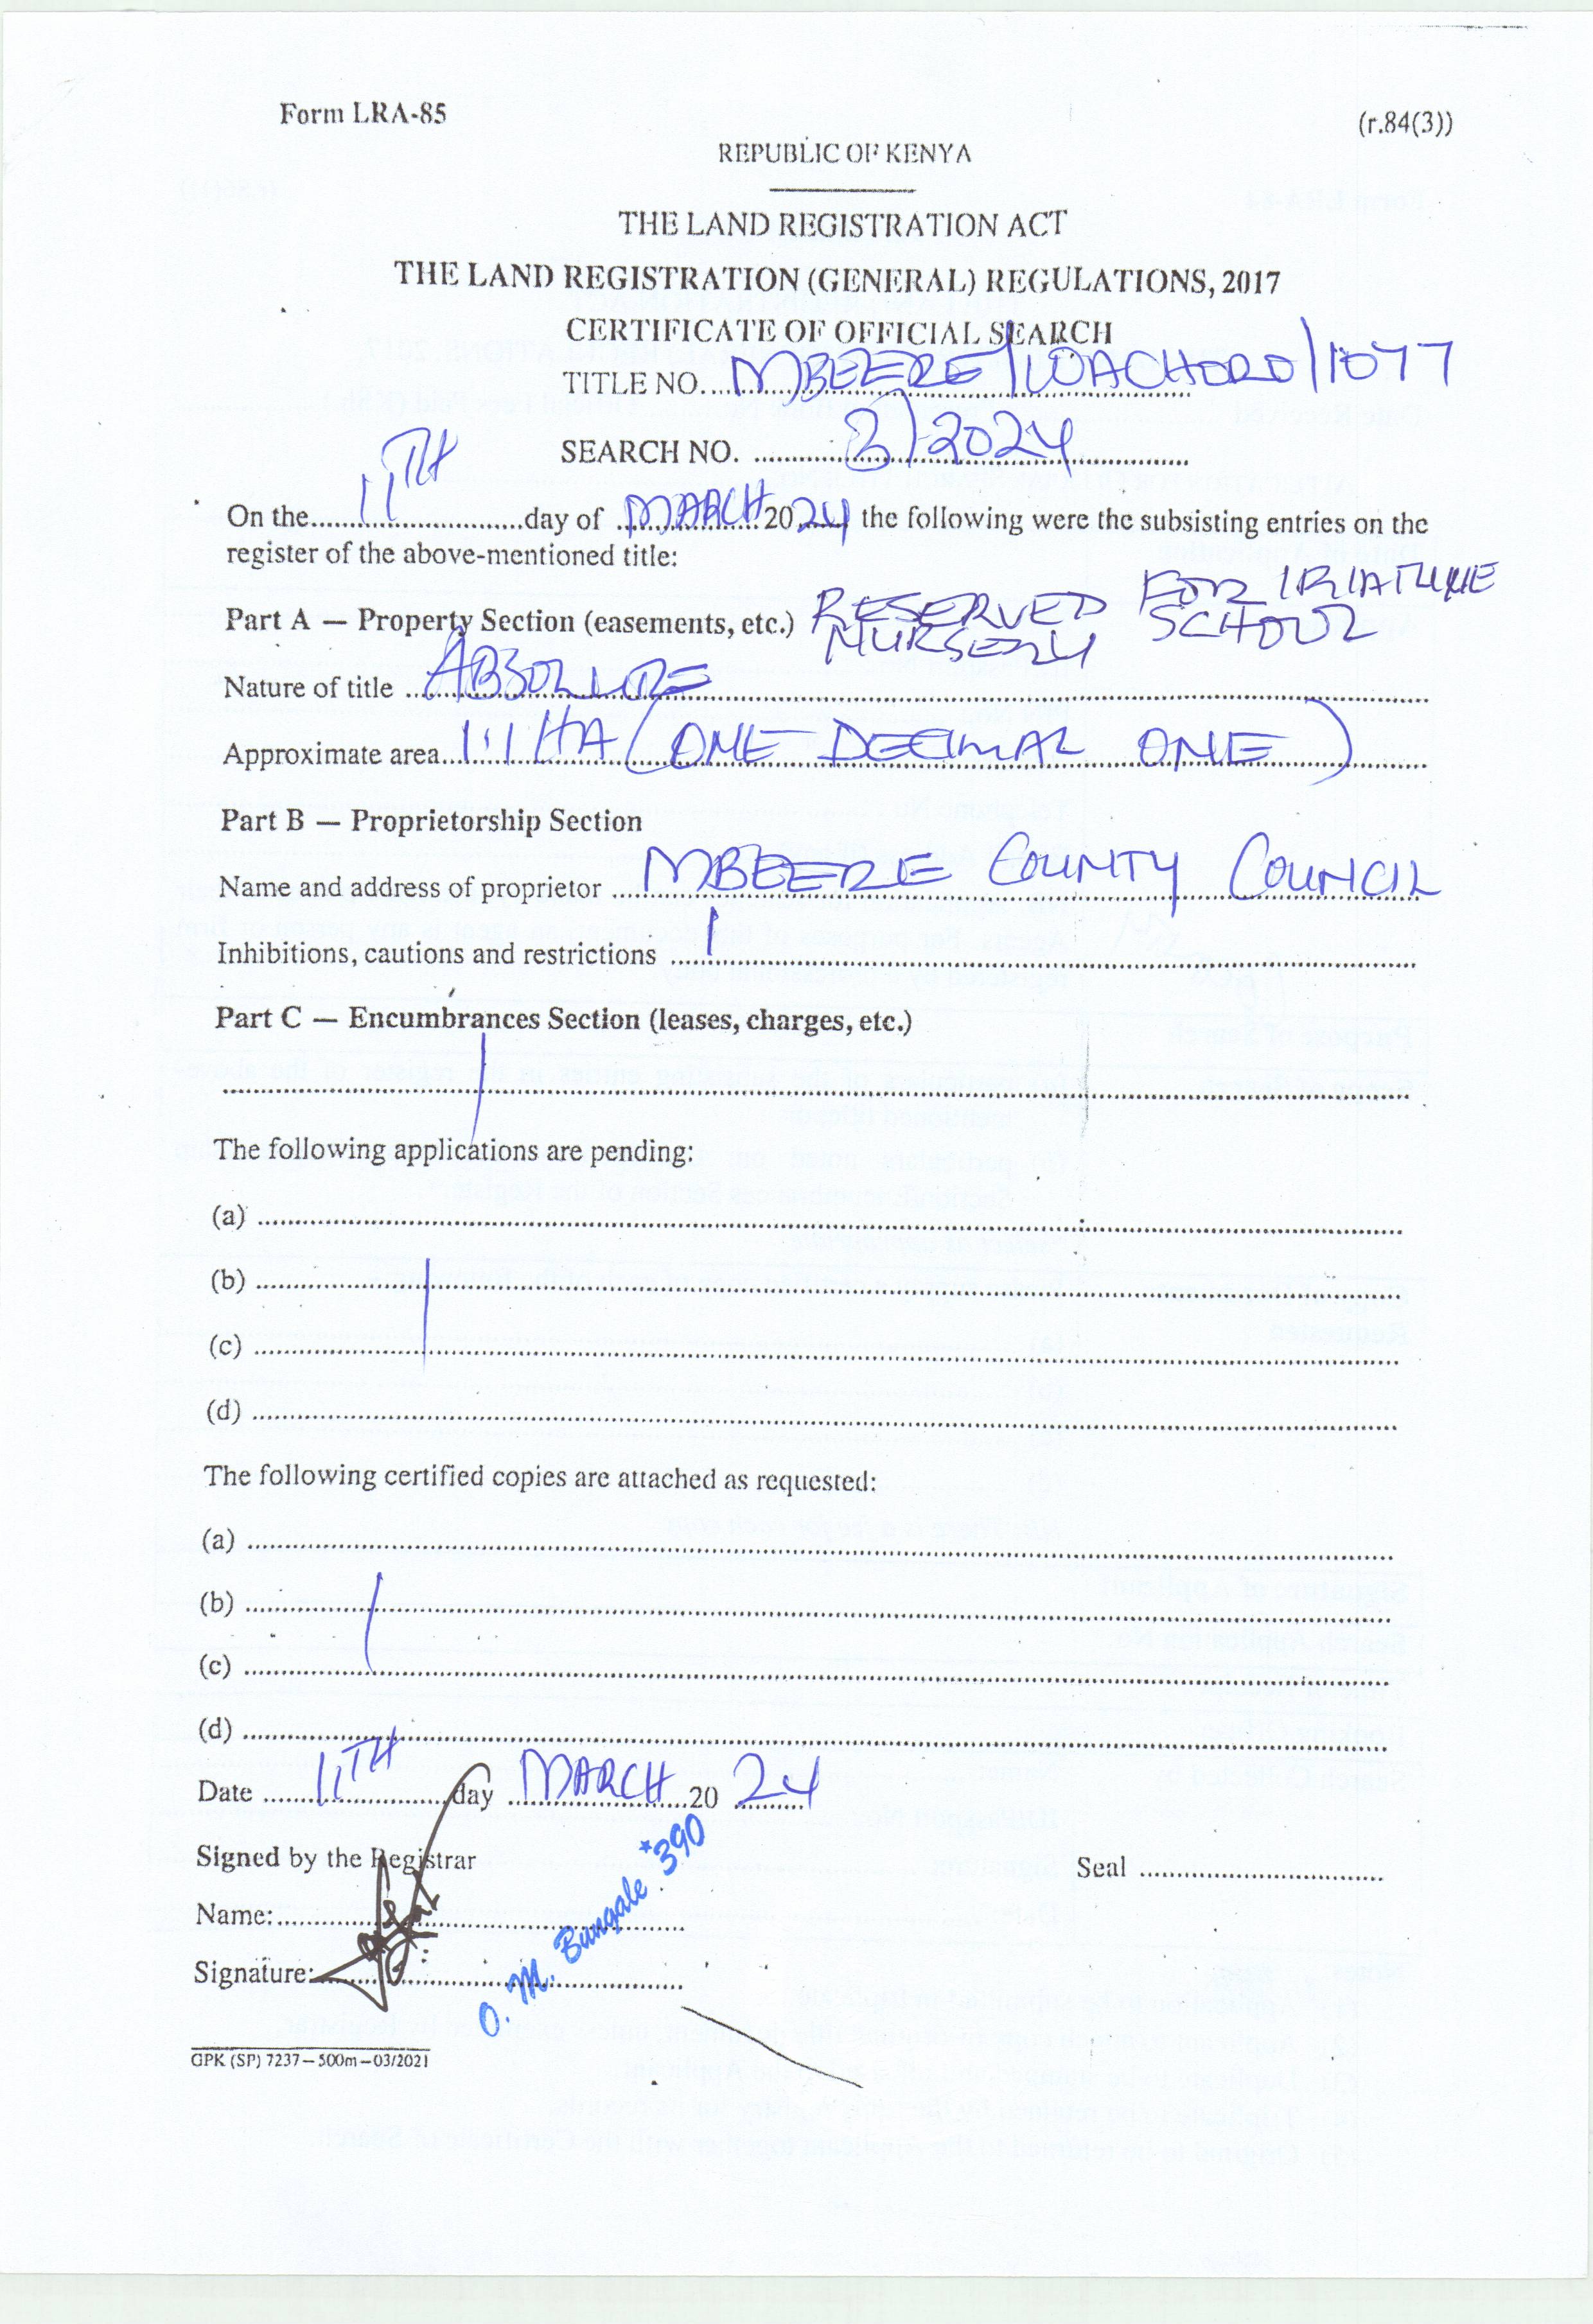 Form LRA-85
(r.84(3))
REPUBLIC OF KENYA
THE LAND REGISTRATION ACT
THE LAND REGISTRATION (GENERAL) REGULATIONS, 2017
CERTIFICATE OF OFFICIAL SEARCH
TITLE NO. MBEERE/WACHORO/1077
SEARCH NO. 3/2024
On the 11TH day of MARCH 2024 the following were the subsisting entries on the
register of the above-mentioned title:
Part A — Property Section (easements, etc.) RESERVED FOR IRIATUNE
NURSERY SCHOOL
Nature of title ABSOLUTE
Approximate area 1.1 HA (ONE DECIMAL ONE)
Part B — Proprietorship Section
Name and address of proprietor MBEERE COUNTY COUNCIL
Inhibitions, cautions and restrictions
Part C — Encumbrances Section (leases, charges, etc.)
The following applications are pending:
(a)
(b)
(c)
(d)
The following certified copies are attached as requested:
(a)
(b)
(c)
(d)
Date 11TH day MARCH 20 24
Signed by the Registrar
Seal
Name:
O. M. Bungale *390
Signature:
GPK (SP) 7237—500m—03/2021